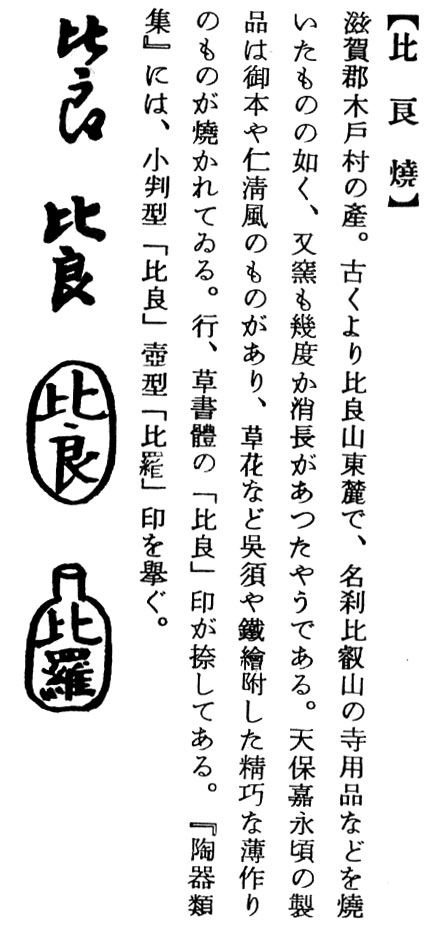 【比良燒】
滋賀郡木戶村の產。古くより比良山東麓で、名刹比叡山の寺用品などを燒
いたものの如く、又窯も幾度か消長があつたやうである。天保嘉永頃の製
品は御本や仁淸風のものがあり、草花など吳須や鐵繪附した精巧な薄作り
のものが燒かれてゐる。行、草書體の「比良」印が捺してある。『陶器類
集』には、小判型「比良」壺型「比羅」印を擧ぐ。
比良
比良
比良
比羅